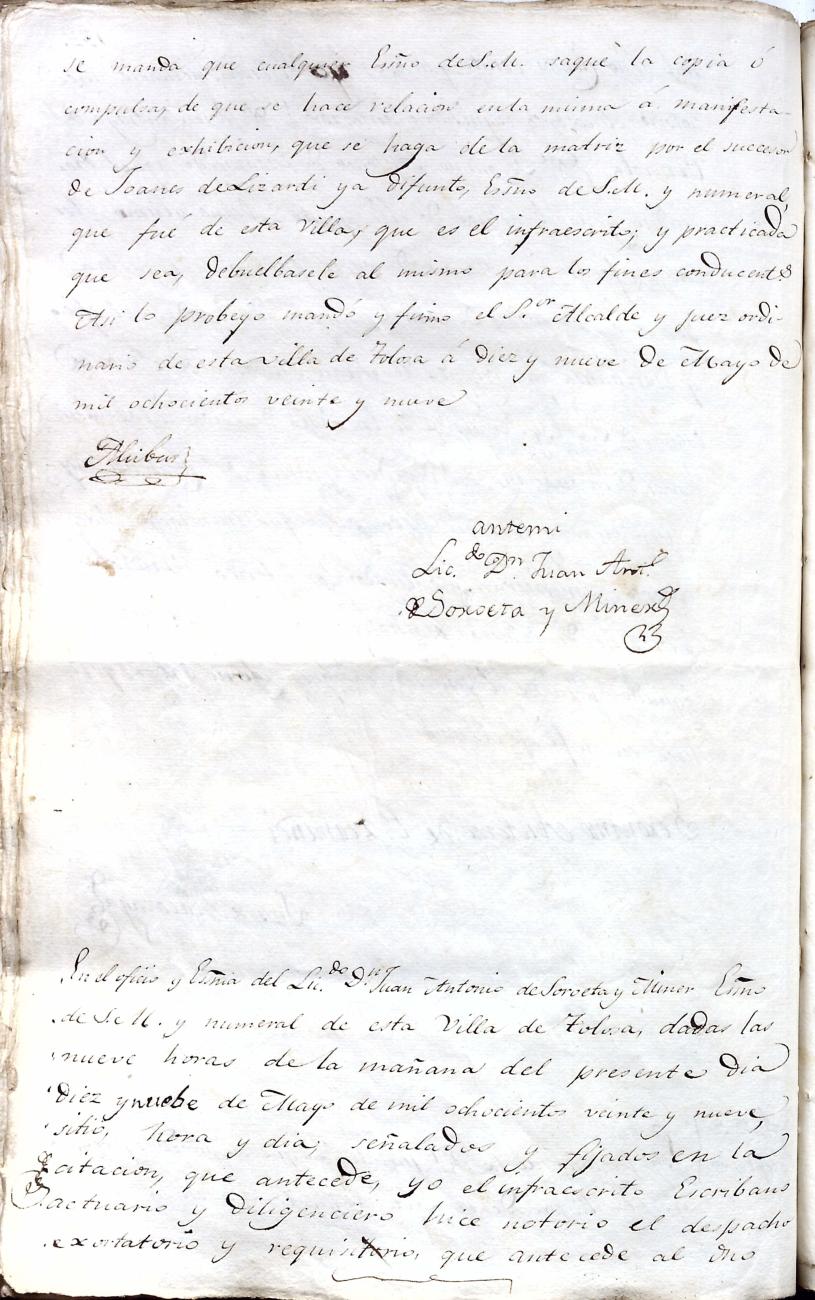 se manda que cualquier Esño de S.M. saque la copia ó
compulsa, de que se hace relacion en la misma á manifesta-
cion y exhibicion, que se haga de la matriz por el succesor
de Joanes de Lizardi ya difunto, Esño de S.M. y numeral,
que fué de esta Villa, que es el infraescrito; y practicada
que sea, debuelbasele al mismo para los fines conducent.s
Asi lo probeyo mandó y firmo el S.or Alcalde y juez ordi-
nario de esta villa de Tolosa á diez y nueve de Mayo de
mil ochocientos veinte y nueve
antemi
Lic.do Dn. Juan Ant.o
de Soroeta y Miner
En el oficio y Esñia del Lic.do Dn. Juan Antonio de Soroeta y Miner Esño
de S.M. y numeral de esta Villa de Tolosa, dadas las
nueve horas de la mañana del presente dia
diez y nuebe de Mayo de mil ochocientos veinte y nueve,
sitio, hora y dia, señalados y fijados en la
citacion, que antecede, yo el infraescrito Escribano
actuario y diligenciero hice notorio el despacho
exortatorio y requisitorio, que antecede al dho